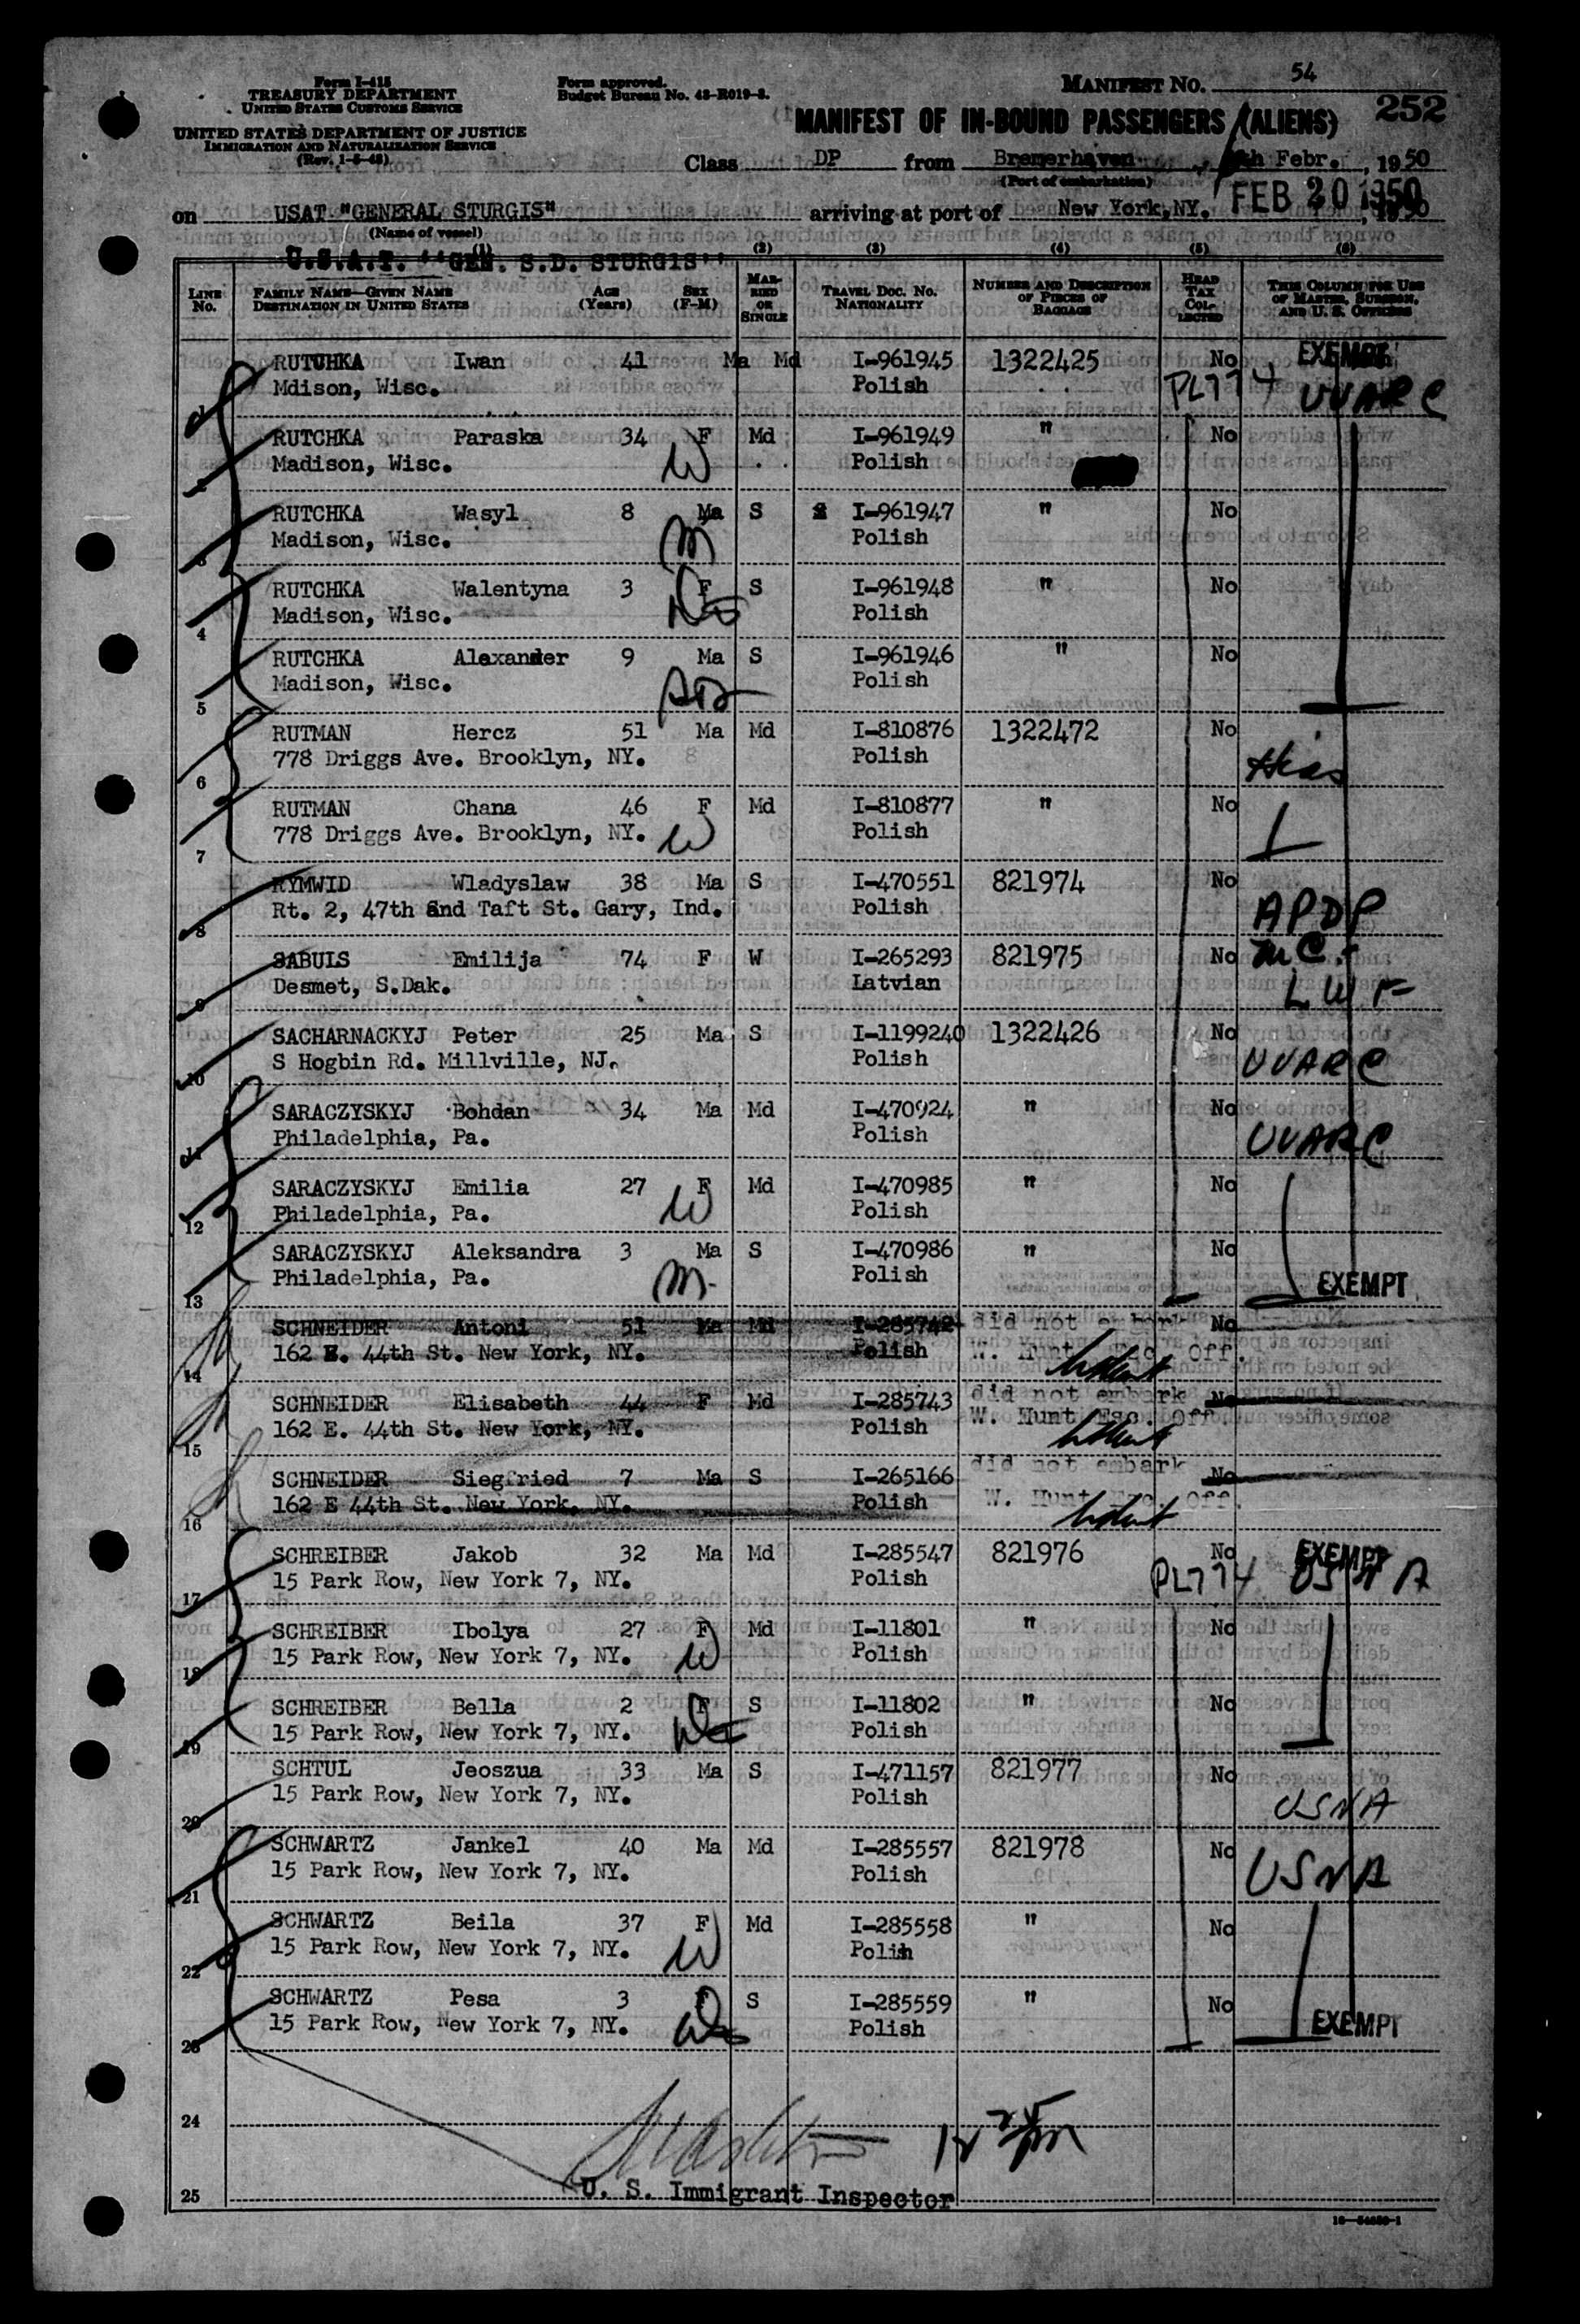 Form I-415
TREASURY DEPARTMENT
UNITED STATES CUSTOMS SERVICE
UNITED STATES DEPARTMENT OF JUSTICE
IMMIGRATION AND NATURALIZATION SERVICE
(Rev. 1-5-48)
Form approved.
Budget Bureau No. 43-R019-3.
MANIFEST NO. 54
252
MANIFEST OF IN-BOUND PASSENGERS (ALIENS)
Class DP from Bremerhaven, Febr., 1950
(Port of embarkation)
on USAT "GENERAL STURGIS" arriving at port of New York, NY. FEB 20 1950
(Name of vessel)
U.S.A.T. "GEN. S.D. STURGIS"
(1) (2) (3) (4) (5) (6)
LINE No. FAMILY NAME—GIVEN NAME DESTINATION IN UNITED STATES AGE (Years) SEX (F-M) MARRIED OR SINGLE TRAVEL DOC. NO. NATIONALITY NUMBER AND DESCRIPTION OF PIECES OF BAGGAGE HEAD TAX COLLECTED THIS COLUMN FOR USE OF MASTER, SURGEON, AND U. S. OFFICERS
RUTCHKA Iwan 41 Ma Md I-961945 1322425 No EXEMPT
1 Mdison, Wisc. Polish PL774 UUARC
RUTCHKA Paraska 34 F Md I-961949 " No
2 Madison, Wisc. W Polish
RUTCHKA Wasyl 8 Ma S I-961947 " No
3 Madison, Wisc. M Polish
RUTCHKA Walentyna 3 F S I-961948 " No
4 Madison, Wisc. Polish
RUTCHKA Alexander 9 Ma S I-961946 " No
5 Madison, Wisc. Polish
RUTMAN Hercz 51 Ma Md I-810876 1322472 No
6 778 Driggs Ave. Brooklyn, NY. Polish Hias
RUTMAN Chana 46 F Md I-810877 " No
7 778 Driggs Ave. Brooklyn, NY. W Polish
RYMWID Wladyslaw 38 Ma S I-470551 821974 No
8 Rt. 2, 47th and Taft St. Gary, Ind. Polish APDP
SABULS Emilija 74 F W I-265293 821975 No MC.
9 Desmet, S.Dak. Latvian LWF
SACHARNACKYJ Peter 25 Ma S I-1199240 1322426 No
10 S Hogbin Rd. Millville, NJ. Polish UUARC
SARACZYSKYJ Bohdan 34 Ma Md I-470924 " No
11 Philadelphia, Pa. Polish UUARC
SARACZYSKYJ Emilia 27 F Md I-470985 " No
12 Philadelphia, Pa. W Polish
SARACZYSKYJ Aleksandra 3 Ma S I-470986 " No
13 Philadelphia, Pa. M. Polish EXEMPT
SCHNEIDER Antoni 51 Ma Md I-285742 did not embark No
14 162 E. 44th St. New York, NY. Polish W. Hunt Esc. Off.
SCHNEIDER Elisabeth 44 F Md I-285743 did not embark No
15 162 E. 44th St. New York, NY. Polish W. Hunt Esc. Off.
SCHNEIDER Siegfried 7 Ma S I-265166 did not embark No
16 162 E 44th St. New York, NY. Polish W. Hunt Esc. Off.
SCHREIBER Jakob 32 Ma Md I-285547 821976 No EXEMPT
17 15 Park Row, New York 7, NY. Polish PL774 USNA
SCHREIBER Ibolya 27 F Md I-11801 " No
18 15 Park Row, New York 7, NY. W Polish
SCHREIBER Bella 2 F S I-11802 " No
19 15 Park Row, New York 7, NY. Polish
SCHTUL Jeoszua 33 Ma S I-471157 821977 No
20 15 Park Row, New York 7, NY. Polish USNA
SCHWARTZ Jankel 40 Ma Md I-285557 821978 No
21 15 Park Row, New York 7, NY. Polish USNA
SCHWARTZ Beila 37 F Md I-285558 " No
22 15 Park Row, New York 7, NY. W Polish
SCHWARTZ Pesa 3 S I-285559 " No
23 15 Park Row, New York 7, NY. Polish EXEMPT
24
25 U. S. Immigrant Inspector